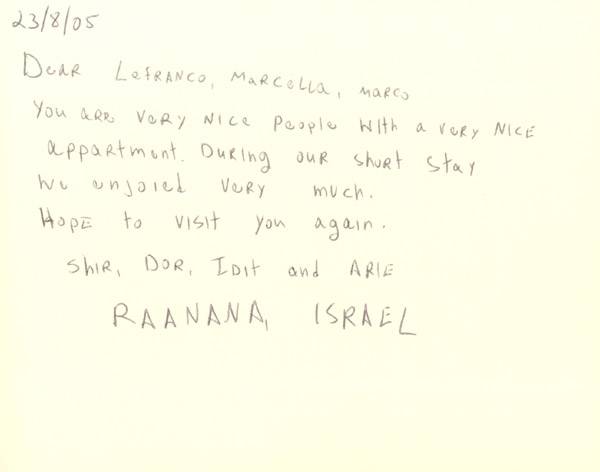 23/8/05
Dear Lefranco, Marcella, Marco
You are very nice people with a very nice
appartment. During our short stay
we enjoied very much.
Hope to visit you again.
Shir, Dor, Idit and Arie
RAANANA, ISRAEL